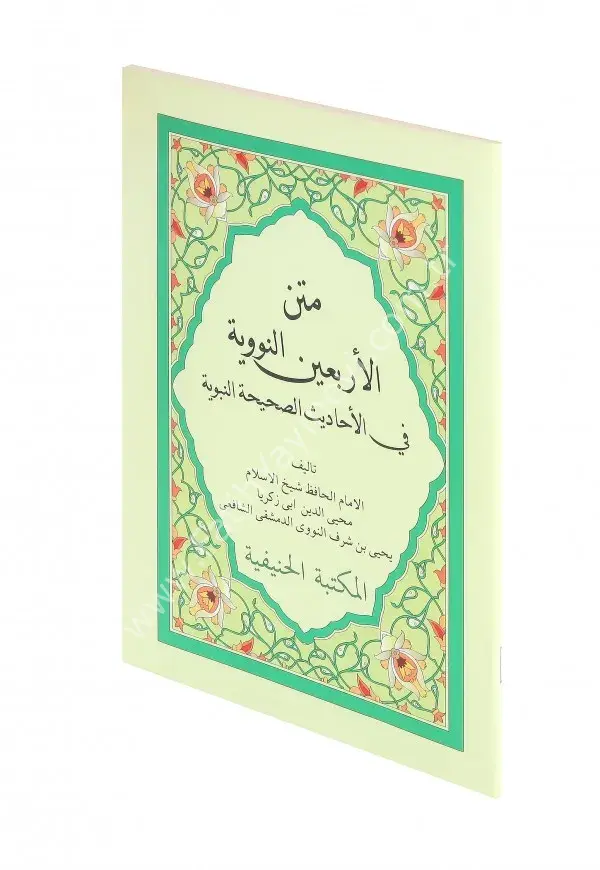 متن
الأربعين النووية
في الأحاديث الصحيحة النبوية
تاليف
الامام الحافظ شيخ الاسلام
محيى الدين ابى زكريا
يحيى بن شرف النووى الدمشقى الشافعى
المكتبة الحنيفية